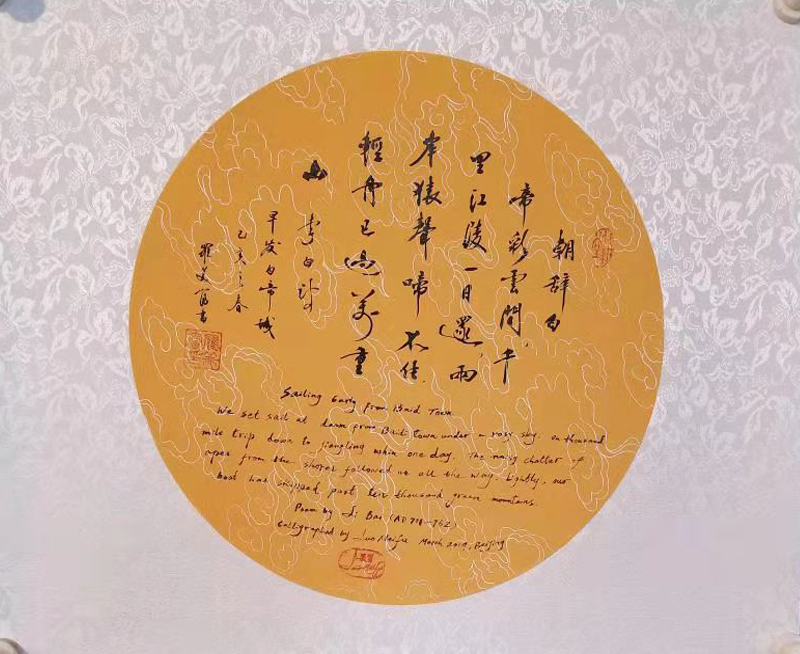 朝辭白
帝彩雲間，千
里江陵一日還，兩
岸猿聲啼不住，
輕舟已過萬重
山 李白詩
早发白帝城
己亥之春
羅美富书
Sailing Early from Baid Town
We set sail at dawn from Baid Town under a rosy sky. on thousand
mile trip down to Jiangling within one day. The noisy chatter of
apes from the shores followed us all the way. Lightly, our
boat had shipped past ten thousand green mountains.
Poem by Li Bai (AD 701—762)
Calligraphed by Luo Meifu March 2019, Beijing